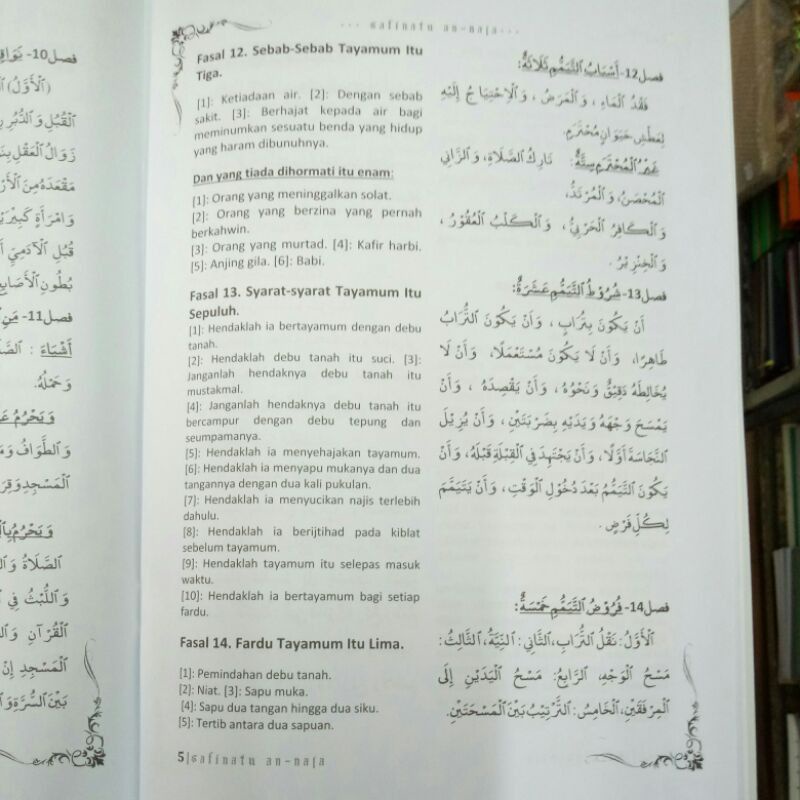 ··· safinatu an-naja···
Fasal 12. Sebab-Sebab Tayamum Itu
Tiga.
[1]: Ketiadaan air. [2]: Dengan sebab
sakit. [3]: Berhajat kepada air bagi
meminumkan sesuatu benda yang hidup
yang haram dibunuhnya.
Dan yang tiada dihormati itu enam:
[1]: Orang yang meninggalkan solat.
[2]: Orang yang berzina yang pernah
berkahwin.
[3]: Orang yang murtad. [4]: Kafir harbi.
[5]: Anjing gila. [6]: Babi.
Fasal 13. Syarat-syarat Tayamum Itu
Sepuluh.
[1]: Hendaklah ia bertayamum dengan debu
tanah.
[2]: Hendaklah debu tanah itu suci. [3]:
Janganlah hendaknya debu tanah itu
mustakmal.
[4]: Janganlah hendaknya debu tanah itu
bercampur dengan debu tepung dan
seumpamanya.
[5]: Hendaklah ia menyehajakan tayamum.
[6]: Hendaklah ia menyapu mukanya dan dua
tangannya dengan dua kali pukulan.
[7]: Hendaklah ia menyucikan najis terlebih
dahulu.
[8]: Hendaklah ia berijtihad pada kiblat
sebelum tayamum.
[9]: Hendaklah tayamum itu selepas masuk
waktu.
[10]: Hendaklah ia bertayamum bagi setiap
fardu.
Fasal 14. Fardu Tayamum Itu Lima.
[1]: Pemindahan debu tanah.
[2]: Niat. [3]: Sapu muka.
[4]: Sapu dua tangan hingga dua siku.
[5]: Tertib antara dua sapuan.
5|safinatu an-naja
فصل12- أَسْبَابُ التَّيَمُّمِ ثَلَاثَةٌ:
فَقْدُ ٱلْمَاءِ ، وَٱلْمَرَضُ ، وَٱلِاحْتِيَاجُ إِلَيْهِ
لِعَطَشِ حَيَوَانٍ مُحْتَرَمٍ.
غَيْرُ ٱلْمُحْتَرَمِ سِتَّةٌ: تَارِكُ الصَّلَاةِ، وَٱلزَّانِي
ٱلْمُحْصَنُ، وَٱلْمُرْتَدُّ،
وَٱلْكَافِرُ ٱلْحَرْبِيُّ ، وَٱلْكَلْبُ ٱلْعَقُوْرُ ،
وَٱلْخِنْزِيْرُ .
فصل13- شُرُوْطُ التَّيَمُّمِ عَشَرَةٌ:
أَنْ يَكُوْنَ بِتُرَابٍ ، وَأَنْ يَكُوْنَ ٱلتُّرَابُ
طَاهِرًا، وَأَنْ لَا يَكُوْنَ مُسْتَعْمَلًا، وَأَنْ لَا
يُخَالِطَهُ دَقِيْقٌ وَنَحْوُهُ ، وَأَنْ يَقْصِدَهُ ، وَأَنْ
يَمْسَحَ وَجْهَهُ وَيَدَيْهِ بِضَرْبَتَيْنِ ، وَأَنْ يُزِيْلَ
ٱلنَّجَاسَةَ أَوَّلًا، وَأَنْ يَجْتَهِدَ فِي ٱلْقِبْلَةِ قَبْلَهُ، وَأَنْ
يَكُوْنَ ٱلتَّيَمُّمُ بَعْدَ دُخُوْلِ ٱلْوَقْتِ ، وَأَنْ يَتَيَمَّمَ
لِكُلِّ فَرْضٍ .
فصل14- فُرُوْضُ التَّيَمُّمِ خَمْسَةٌ:
ٱلْأَوَّلُ: نَقْلُ التُّرَابِ، ٱلثَّانِي: ٱلنِّيَّةُ، ٱلثَّالِثُ:
مَسْحُ ٱلْوَجْهِ، ٱلرَّابِعُ: مَسْحُ ٱلْيَدَيْنِ إِلَى
ٱلْمِرْفَقَيْنِ، ٱلْخَامِسُ: ٱلتَّرْتِيْبُ بَيْنَ ٱلْمَسْحَتَيْنِ.
فصل10- نَوَاقِ
(ٱلْأَوَّلُ)
ٱلْقُبُلِ وَٱلدُّبُرِ
زَوَالُ ٱلْعَقْلِ
مَقْعَدَهُ مِنَ ٱلْأَرْ
وَامْرَأَةٍ كَبِيْرَ
قُبُلِ ٱلْآدَمِيِّ
بُطُوْنِ ٱلْأَصَابِعِ
فصل11- مَنِ
أَشْيَاءَ : الصَّ
وَحَمْلُهُ.
وَيَحْرُمُ عَ
وَالطَّوَافُ وَمَ
ٱلْمَسْجِدِ وَقِرَ
وَيَحْرُمُ بِٱلْ
ٱلصَّلَاةُ وَال
وَاللُّبْثُ فِي
ٱلْقُرْآنِ وَال
ٱلْمَسْجِدِ إِنْ
بَيْنَ السُّرَّةِ وَ